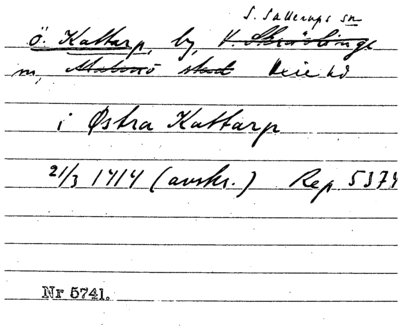 S. Sallerups sn
Ö. Kattarp, by, V. Skrävlinge
m, Malmö stad
i Østra Kattarp
21/3 1414 (avskr.) Rep 5374
Nr 5741.